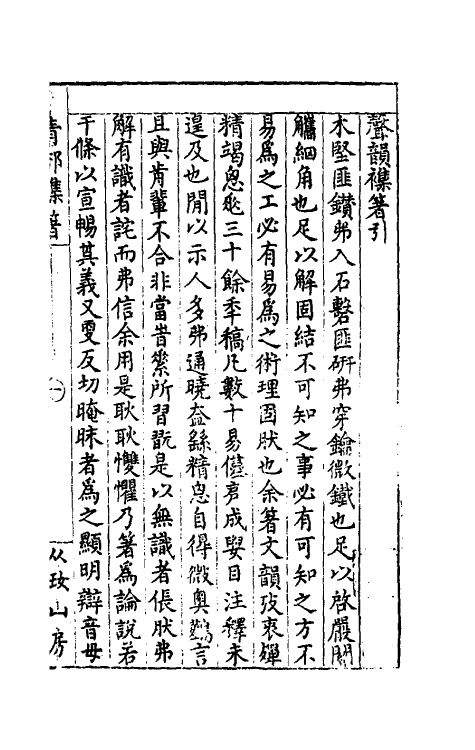 聲韻襍箸引
木堅匪鑚弗入石礊匪硏弗穿鑰微鐵也足以啓嚴關
觿細角也足以解固結不可知之事必有可知之方不
易爲之工必有易爲之術理固肰也余箸文韻攷衷殫
精竭息飛三十餘秊稿凡數十易僅克成婜目注釋未
遑及也閒以示人多弗通曉葢繇精息自得微奧難言
且與肯輩不合非當昔縈所習翫是以無識者倀肰弗
解有識者詫而弗信余用是耿耿戄懼乃箸爲論說若
干條以宣暢其義又雯反切晻昧者爲之顯明辯音毋
青郊集箸
一
从玫山房